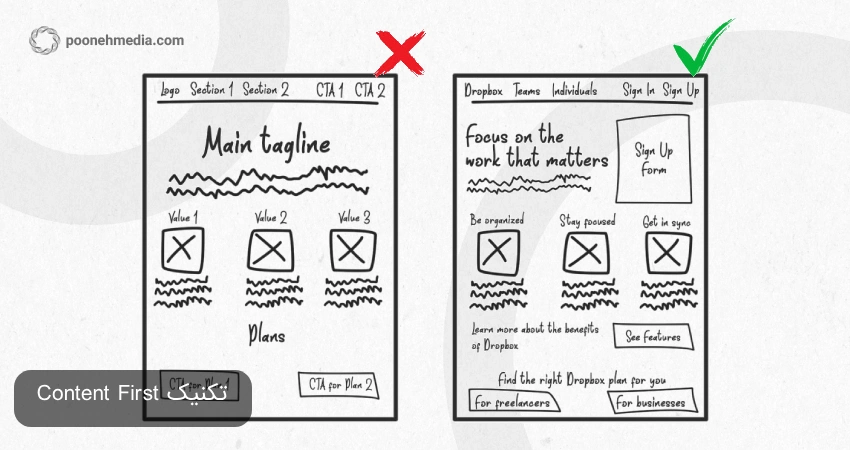 poonehmedia.com
Logo Section 1 Section 2 CTA 1 CTA 2
Main tagline
Value 1 Value 2 Value 3
Plans
CTA for Plan 1 CTA for Plan 2
Dropbox Teams Individuals Sign In Sign Up
Focus on the
work that matters
Sign Up
Form
Be organized Stay focused Get in sync
Learn more about the benefits
of Dropbox
See Features
Find the right Dropbox plan for you
For freelancers For businesses
تکنیک Content First